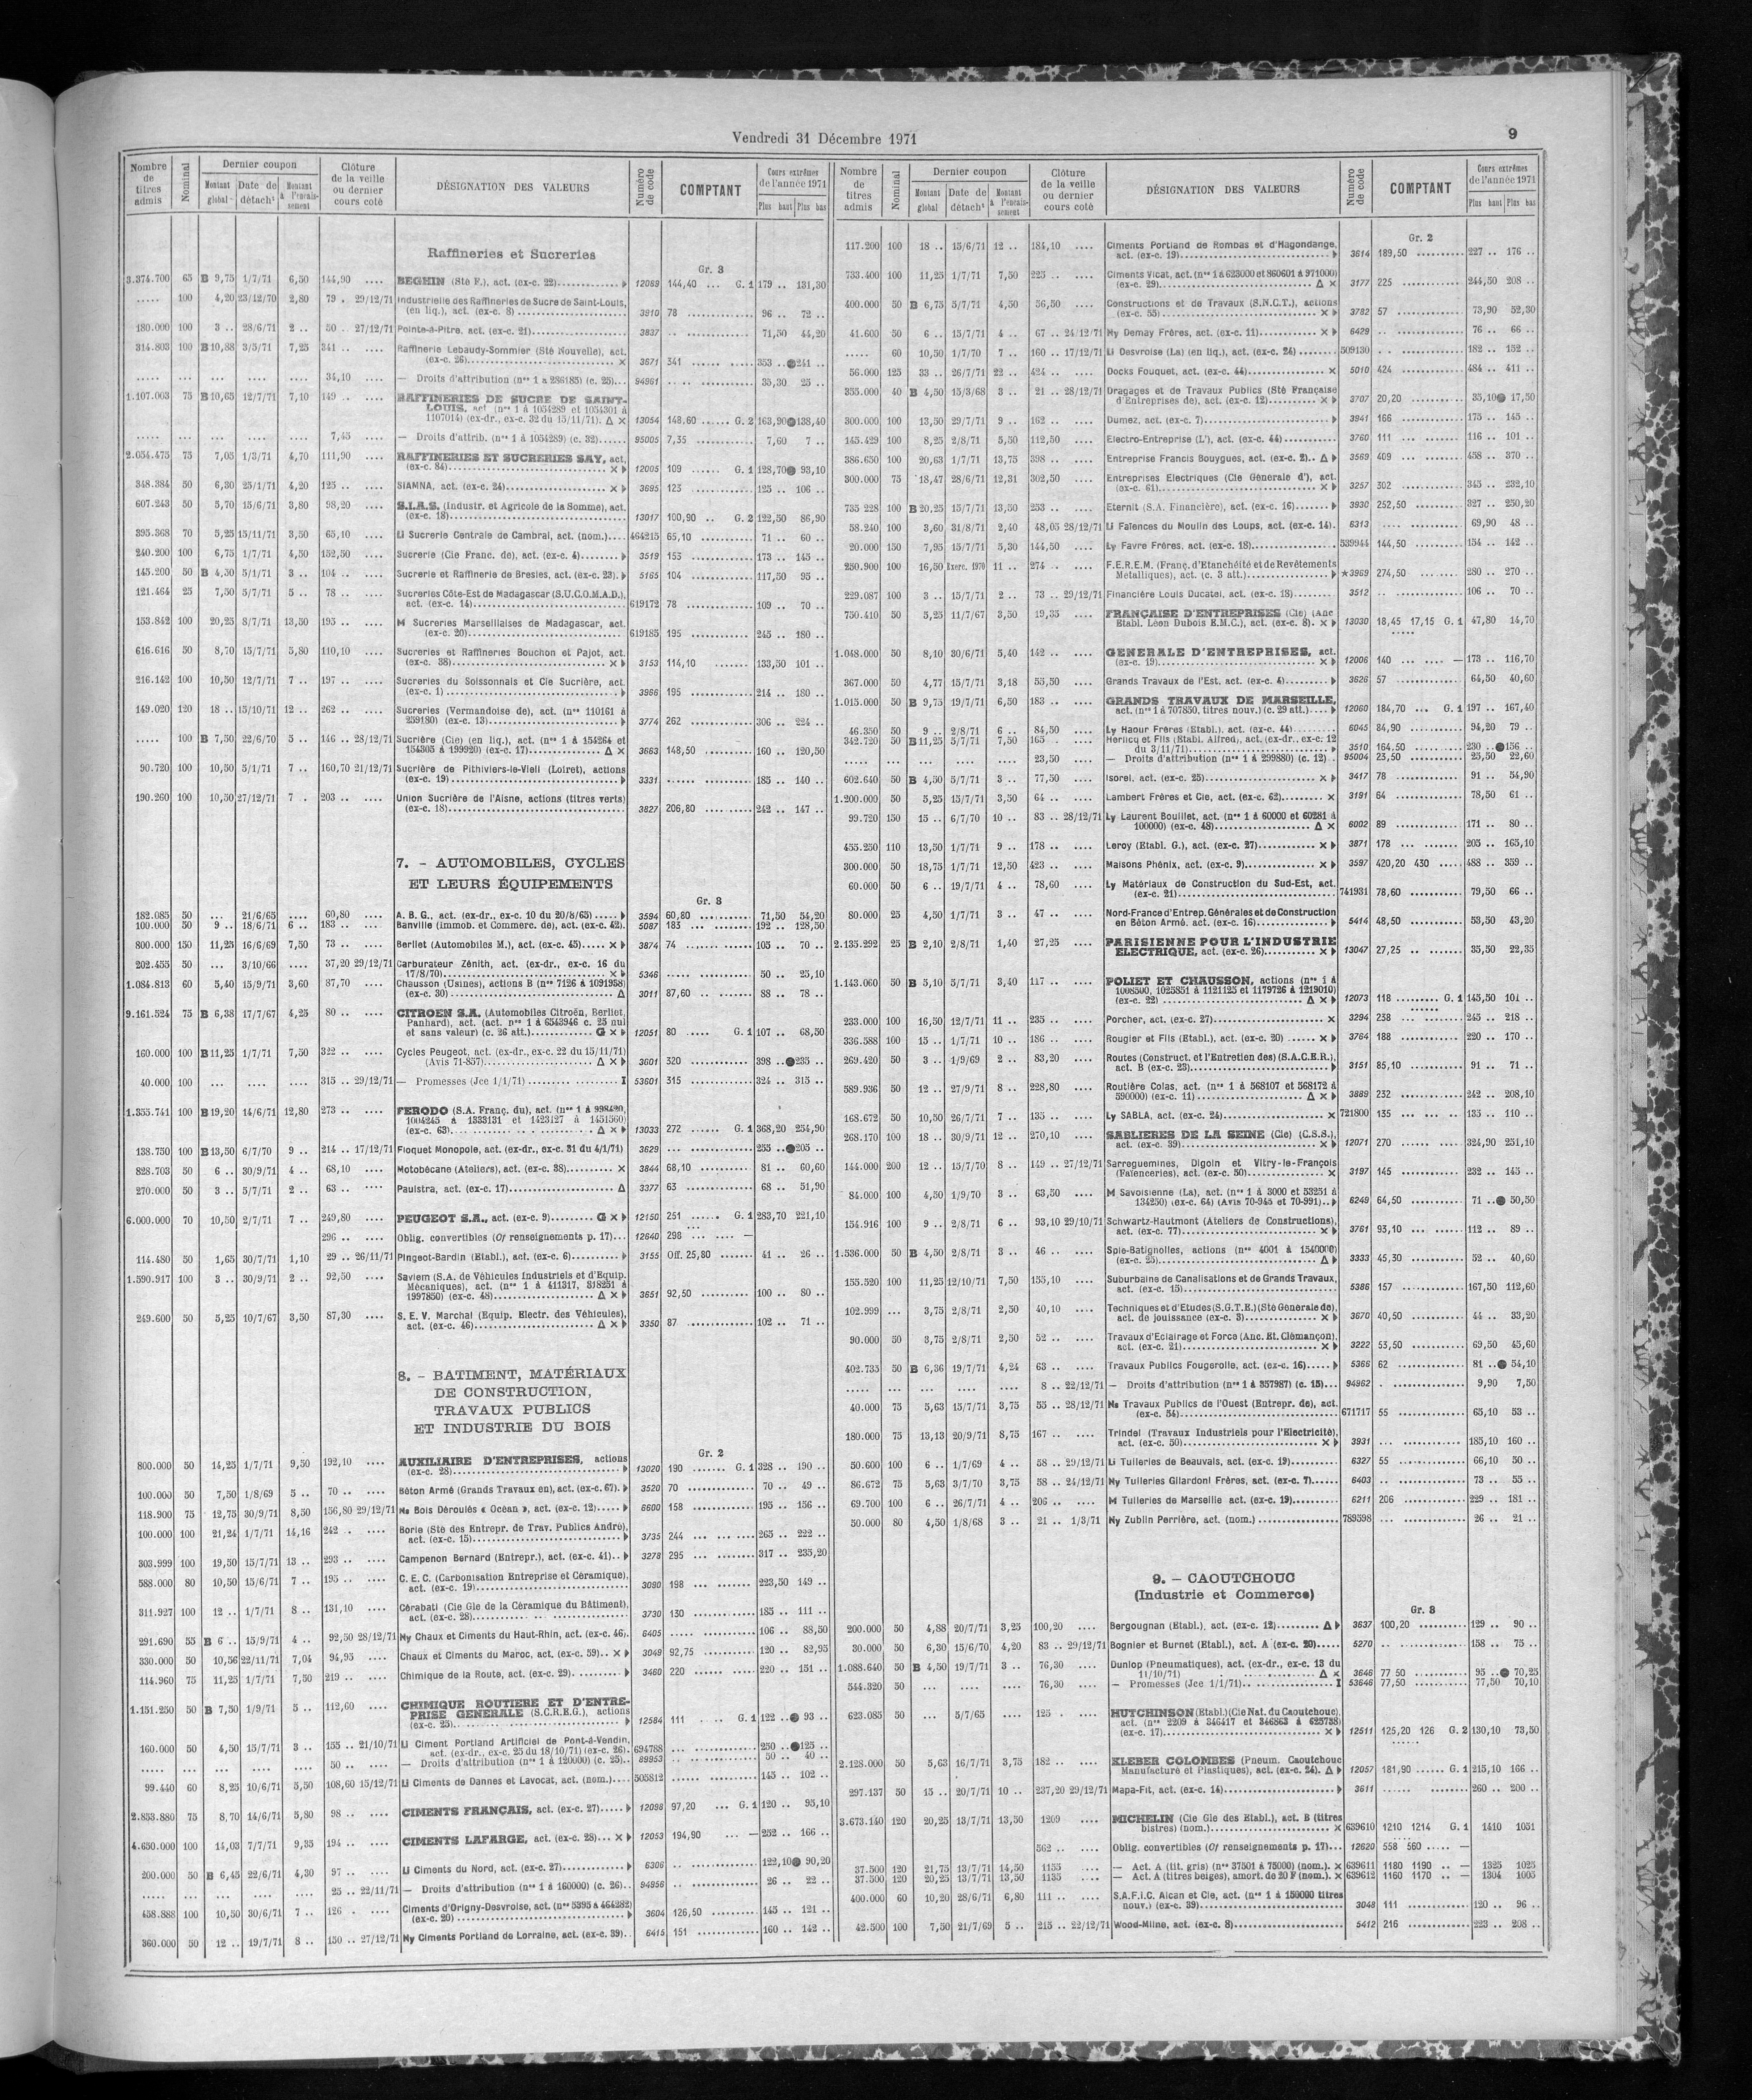 Vendredi 31 Décembre 1971
9
Nombre de titres admis | Nominal | Dernier coupon | Montant global | Date de détacht | Montant à l'encaissement | Clôture de la veille ou dernier cours coté | DÉSIGNATION DES VALEURS | Numéro de code | COMPTANT | Cours extrêmes de l'année 1971 | Plus haut | Plus bas
Raffineries et Sucreries
Gr. 3
3.374.700 65 B 9,75 1/7/71 6,50 144,90 .... BEGHIN (Sté F.), act. (ex-c. 22) 12069 144,40 ... G. 1 179 .. 131,30
..... 100 4,20 23/12/70 2,80 79 . 29/12/71 Industrielle des Raffineries de Sucre de Saint-Louis,
(en liq.), act. (ex-c. 8) 3910 78 96 .. 72 ..
180.000 100 3 .. 28/6/71 2 .. 50 .. 27/12/71 Pointe-à-Pitre, act. (ex-c. 21) 3837 71,50 44,20
314.803 100 B 10,88 3/5/71 7,25 341 .. .... Raffinerie Lebaudy-Sommier (Sté Nouvelle), act.
(ex-c. 26) × 3671 341 353 .. ●241 ..
..... 34,10 .... — Droits d'attribution (nos 1 à 286185) (c. 25) 94961 35,30 25 ..
1.107.003 75 B 10,65 12/7/71 7,10 149 .. .... RAFFINERIES DE SUCRE DE SAINT-
LOUIS, act. (nos 1 à 1054289 et 1054301 à
1107014) (ex-dr., ex-c. 32 du 15/11/71). Δ × 13054 148,60 ...... G. 2 163,90 ●138,40
..... 7,45 .... — Droits d'attrib. (nos 1 à 1054289) (c. 32) 95005 7,35 7,60 7 ..
2.054.475 75 7,05 1/3/71 4,70 111,90 .... RAFFINERIES ET SUCRERIES SAY, act.
(ex-c. 84) × 12005 109 ...... G. 1 128,70 ● 93,10
348.384 50 6,30 25/1/71 4,20 125 .. .... SIAMNA, act. (ex-c. 24) × 3695 123 125 .. 106 ..
607.243 50 5,70 15/6/71 3,80 98,20 .... S.I.A.S. (Industr. et Agricole de la Somme), act.
(ex-c. 18) 13017 100,90 .. G. 2 122,50 86,90
395.368 70 5,25 15/11/71 3,50 65,10 .... Li Sucrerie Centrale de Cambrai, act. (nom.) 464215 65,10 71 .. 60 ..
240.200 100 6,75 1/7/71 4,50 152,50 .... Sucrerie (Cie Franc. de), act. (ex-c. 4) 3519 153 173 .. 145 ..
145.200 50 B 4,50 5/1/71 3 .. 104 .. .... Sucrerie et Raffinerie de Bresles, act. (ex-c. 23) 5165 104 117,50 95 ..
121.464 25 7,50 5/7/71 5 .. 78 .. .... Sucreries Côte-Est de Madagascar (S.U.C.O.M.A.D.),
act. (ex-c. 14) 619172 78 109 .. 70 ..
153.842 100 20,25 8/7/71 13,50 195 .. .... M Sucreries Marseillaises de Madagascar, act.
(ex-c. 20) 619185 195 245 .. 180 ..
616.616 50 8,70 15/7/71 5,80 110,10 .... Sucreries et Raffineries Bouchon et Pajot, act.
(ex-c. 38) × 3153 114,10 133,50 101 ..
216.142 100 10,50 12/7/71 7 .. 197 .. .... Sucreries du Soissonnais et Cie Sucrière, act.
(ex-c. 1) 3966 195 214 .. 180 ..
149.020 120 18 .. 15/10/71 12 .. 262 .. .... Sucreries (Vermandoise de), act. (nos 110161 à
259180) (ex-c. 13) 3774 262 306 .. 224 ..
..... 100 B 7,50 22/6/70 5 .. 146 .. 28/12/71 Sucrière (Cie) (en liq.), act. (nos 1 à 154264 et
154305 à 199920) (ex-c. 17) Δ × 3663 148,50 160 .. 120,50
90.720 100 10,50 5/1/71 7 .. 160,70 21/12/71 Sucrière de Pithiviers-le-Vieil (Loiret), actions
(ex-c. 19) 3331 185 .. 140 ..
190.260 100 10,50 27/12/71 7 . 203 .. .... Union Sucrière de l'Aisne, actions (titres verts)
(ex-c. 18) 3827 206,80 242 .. 147 ..
7. - AUTOMOBILES, CYCLES
ET LEURS ÉQUIPEMENTS
Gr. 8
182.085 50 ... 21/6/65 .... 60,80 .... A. B. G., act. (ex-dr., ex-c. 10 du 20/8/65) 3594 60,80 71,50 54,20
100.000 50 9 .. 18/6/71 6 .. 183 .. .... Banville (Immob. et Commerc. de), act. (ex-c. 42). 5087 183 192 .. 128,50
800.000 150 11,25 16/6/69 7,50 73 .. .... Berliet (Automobiles M.), act. (ex-c. 45) × 3874 74 105 .. 70 ..
202.455 50 ... 3/10/66 .... 37,20 29/12/71 Carburateur Zénith, act. (ex-dr., ex-c. 16 du
17/8/70) × 5346 50 .. 25,10
1.084.813 60 5,40 15/9/71 3,60 87,70 .... Chausson (Usines), actions B (nos 7126 à 1091938)
(ex-c. 30) Δ 3011 87,60 88 .. 78 ..
9.161.524 75 B 6,38 17/7/67 4,25 80 .. .... CITROEN S.A. (Automobiles Citroën, Berliet,
Panhard), act. (act. nos 1 à 6543946 c. 25 nul
et sans valeur) (c. 26 att.) G × 12051 80 ..... G. 1 107 .. 68,50
160.000 100 B 11,25 1/7/71 7,50 322 .. .... Cycles Peugeot, act. (ex-dr., ex-c. 22 du 15/11/71)
(Avis 71-857) Δ × 3601 320 398 .. ●235 ..
40.000 100 ... .... .... 315 .. 29/12/71 — Promesses (Jce 1/1/71) I 53601 315 324 .. 315 ..
1.355.741 100 B 19,20 14/6/71 12,80 273 .. .... FERODO (S.A. Franç. du), act. (nos 1 à 998420,
1004245 à 1333131 et 1423127 à 1451560)
(ex-c. 63) Δ × 13033 272 ..... G. 1 368,20 254,90
138.750 100 B 13,50 6/7/70 9 .. 214 .. 17/12/71 Floquet Monopole, act. (ex-dr., ex-c. 31 du 4/1/71) 3629 255 .. ●205 ..
828.703 50 6 .. 30/9/71 4 .. 68,10 .... Motobécane (Ateliers), act. (ex-c. 38) × 3844 68,10 81 .. 60,60
270.000 50 3 .. 5/7/71 2 .. 63 .. .... Paulstra, act. (ex-c. 17) Δ 3377 63 68 .. 51,90
6.000.000 70 10,50 2/7/71 7 .. 249,80 .... PEUGEOT S.A., act. (ex-c. 9) G × 12150 251 ...... G. 1 283,70 221,10
296 .. .... Oblig. convertibles (Cf renseignements p. 17) 12640 298 ... .... —
114.480 50 1,65 30/7/71 1,10 29 .. 26/11/71 Pingeot-Bardin (Etabl.), act. (ex-c. 6) 3155 Off. 25,80 41 .. 26 ..
1.590.917 100 3 .. 30/9/71 2 .. 92,50 .... Saviem (S.A. de Véhicules Industriels et d'Equip.
Mécaniques), act. (nos 1 à 411317, 818251 à
1997850) (ex-c. 48) Δ × 3651 92,50 100 .. 80 ..
249.600 50 5,25 10/7/67 3,50 87,30 .... S. E. V. Marchal (Equip. Electr. des Véhicules),
act. (ex-c. 46) Δ × 3350 87 102 .. 71 ..
8. - BATIMENT, MATÉRIAUX
DE CONSTRUCTION,
TRAVAUX PUBLICS
ET INDUSTRIE DU BOIS
Gr. 2
800.000 50 14,25 1/7/71 9,50 192,10 .... AUXILIAIRE D'ENTREPRISES, actions
(ex-c. 28) 13020 190 ....... G. 1 328 .. 190 ..
100.000 50 7,50 1/8/69 5 .. 70 .. .... Béton Armé (Grands Travaux en), act. (ex-c. 67). 3520 70 70 .. 49 ..
118.900 75 12,75 30/9/71 8,50 156,80 29/12/71 Ns Bois Déroulés « Océan », act. (ex-c. 12) 6600 158 195 .. 156 ..
100.000 100 21,24 1/7/71 14,16 242 . .... Borie (Sté des Entrepr. de Trav. Publics André),
act. (ex-c. 15) 3735 244 265 .. 222 ..
303.999 100 19,50 15/7/71 13 .. 293 .. .... Campenon Bernard (Entrepr.), act. (ex-c. 41) 3278 295 317 .. 235,20
588.000 80 10,50 15/6/71 7 .. 195 .. .... C. E. C. (Carbonisation Entreprise et Céramique),
act. (ex-c. 19) 3090 198 223,50 149 ..
311.927 100 12 .. 1/7/71 8 .. 131,10 .... Cérabati (Cie Gle de la Céramique du Bâtiment),
act. (ex-c. 28) 3730 130 185 .. 111 ..
291.690 55 B 6 .. 15/9/71 4 .. 92,50 28/12/71 Ny Chaux et Ciments du Haut-Rhin, act. (ex-c. 46). 6405 106 .. 88,50
330.000 50 10,56 22/11/71 7,04 94,95 .... Chaux et Ciments du Maroc, act. (ex-c. 59) × 3049 92,75 120 .. 82,95
114.960 75 11,25 1/7/71 7,50 219 .. .... Chimique de la Route, act. (ex-c. 29) 3460 220 220 .. 151 ..
1.151.250 50 B 7,50 1/9/71 5 .. 112,60 .... CHIMIQUE ROUTIERE ET D'ENTRE-
PRISE GENERALE (S.C.R.E.G.), actions
(ex-c. 25) 12584 111 . ... G. 1 122 .. ● 93 ..
160.000 50 4,50 15/7/71 3 .. 155 .. 21/10/71 Li Ciment Portland Artificiel de Pont-à-Vendin,
act. (ex-dr., ex-c. 25 du 18/10/71) (ex-c. 26). 694788 250 .. ●125 ..
..... 50 .. .... — Droits d'attribution (nos 1 à 120000) (c. 25) 89953 50 .. 40 ..
99.440 60 8,25 10/6/71 5,50 108,60 15/12/71 Li Ciments de Dannes et Lavocat, act. (nom.) 505812 145 .. 102 ..
2.853.880 75 8,70 14/6/71 5,80 98 .. .... CIMENTS FRANÇAIS, act. (ex-c. 27) 12098 97,20 ... G. 1 120 .. 95,10
4.650.000 100 14,03 7/7/71 9,35 194 .. .... CIMENTS LAFARGE, act. (ex-c. 28) × 12053 194,90 ... — 252 .. 166 ..
200.000 50 B 6,45 22/6/71 4,30 97 .. .... Li Ciments du Nord, act. (ex-c. 27) 6306 122,10 ● 90,20
..... 25 .. 22/11/71 — Droits d'attribution (nos 1 à 160000) (c. 26) 94956 26 .. 22 ..
458.888 100 10,50 30/6/71 7 .. 126 . .... Ciments d'Origny-Desvroise, act. (nos 5395 à 464282)
(ex-c. 20) 3604 126,50 145 .. 121 ..
360.000 50 12 .. 19/7/71 8 .. 150 .. 27/12/71 Ny Ciments Portland de Lorraine, act. (ex-c. 39) 6415 151 160 .. 142 ..
Nombre de titres admis | Nominal | Dernier coupon | Montant global | Date de détacht | Montant à l'encaissement | Clôture de la veille ou dernier cours coté | DÉSIGNATION DES VALEURS | Numéro de code | COMPTANT | Cours extrêmes de l'année 1971 | Plus haut | Plus bas
Gr. 2
117.200 100 18 .. 15/6/71 12 .. 184,10 .... Ciments Portland de Rombas et d'Hagondange,
act. (ex-c. 19) 3614 189,50 227 .. 176 ..
733.400 100 11,25 1/7/71 7,50 225 .. .... Ciments Vicat, act. (nos 1 à 623000 et 860601 à 971000)
(ex-c. 29) Δ × 3177 225 244,50 208 ..
400.000 50 B 6,75 5/7/71 4,50 56,50 .... Constructions et de Travaux (S.N.C.T.), actions
(ex-c. 55) × 3782 57 73,90 52,30
41.600 50 6 .. 15/7/71 4 .. 67 .. 24/12/71 Ny Demay Frères, act. (ex-c. 11) × 6429 76 .. 66 ..
..... 60 10,50 1/7/70 7 .. 160 .. 17/12/71 Li Desvroise (La) (en liq.), act. (ex-c. 24) 509130 182 .. 152 ..
56.000 125 33 .. 26/7/71 22 .. 424 .. .... Docks Fouquet, act. (ex-c. 44) × 5010 424 484 .. 411 ..
355.000 40 B 4,50 15/3/68 3 .. 21 .. 28/12/71 Dragages et de Travaux Publics (Sté Française
d'Entreprises de), act. (ex-c. 12) × 3707 20,20 35,10 ● 17,50
300.000 100 13,50 29/7/71 9 .. 162 .. .... Dumez, act. (ex-c. 7) 3941 166 175 .. 145 ..
145.429 100 8,25 2/8/71 5,50 112,50 .... Electro-Entreprise (L'), act. (ex-c. 44) 3760 111 116 .. 101 ..
386.650 100 20,63 1/7/71 13,75 398 .. .... Entreprise Francis Bouygues, act. (ex-c. 2) Δ 3569 409 458 .. 370 ..
300.000 75 18,47 28/6/71 12,31 302,50 .... Entreprises Electriques (Cie Générale d'), act.
(ex-c. 61) × 3257 302 345 .. 232,10
735 228 100 B 20,25 15/7/71 13,50 253 .. .... Eternit (S.A. Financière), act. (ex-c. 16) 3930 252,50 327 .. 250,20
58.240 100 3,60 31/8/71 2,40 48,05 28/12/71 Li Faïences du Moulin des Loups, act. (ex-c. 14). 6313 69,90 48 ..
20.000 150 7,95 15/7/71 5,30 144,50 .... Ly Favre Frères, act. (ex-c. 18) 539944 144,50 154 .. 142 ..
250.900 100 16,50 Exerc. 1970 11 .. 274 . .... F.E.R.E.M. (Franç. d'Etanchéité et de Revêtements
Métalliques), act. (c. 3 att.) ★3969 274,50 280 .. 270 ..
229.087 100 3 .. 15/7/71 2 .. 73 .. 29/12/71 Financière Louis Ducatel, act. (ex-c. 18) 3512 106 .. 70 ..
750.410 50 5,25 11/7/67 3,50 19,35 .... FRANÇAISE D'ENTREPRISES (Cie) (Anc
Etabl. Léon Dubois E.M.C.), act. (ex-c. 8). × 13030 18,45 17,15 G. 1 47,80 14,70
1.048.000 50 8,10 30/6/71 5,40 142 .. .... GENERALE D'ENTREPRISES, act.
(ex-c. 19) × 12006 140 ... .... — 173 .. 116,70
367.000 50 4,77 15/7/71 3,18 55,50 .... Grands Travaux de l'Est, act. (ex-c. 4) 3626 57 64,50 40,60
1.015.000 50 B 9,75 19/7/71 6,50 183 .. .... GRANDS TRAVAUX DE MARSEILLE,
act. (nos 1 à 707850, titres nouv.) (c. 29 att.) 12060 184,70 ... G. 1 197 .. 167,40
46.350 50 9 .. 2/8/71 6 .. 84,50 .... Ly Haour Frères (Etabl.), act. (ex-c. 44) 6045 84,90 94,20 79 ..
342.720 50 B 11,25 5/7/71 7,50 165 . .... Herlicq et Fils (Etabl. Alfred), act. (ex-dr., ex-c. 12
du 3/11/71) 3510 164,50 230 .. ●156 ..
..... 23,50 .... — Droits d'attribution (nos 1 à 299880) (c. 12) 95004 23,50 25,50 22,60
602.640 50 B 4,50 5/7/71 3 .. 77,50 .... Isorel, act. (ex-c. 25) × 3417 78 91 .. 54,90
1.200.000 50 5,25 15/7/71 3,50 64 .. .... Lambert Frères et Cie, act. (ex-c. 62) × 3191 64 78,50 61 ..
99.720 150 15 .. 6/7/70 10 .. 83 .. 28/12/71 Ly Laurent Bouillet, act. (nos 1 à 60000 et 60281 à
100000) (ex-c. 48) Δ × 6002 89 171 .. 80 ..
455.250 110 13,50 1/7/71 9 .. 178 .. .... Leroy (Etabl. G.), act. (ex-c. 27) × 3871 178 205 .. 165,10
300.000 50 18,75 1/7/71 12,50 423 .. .... Maisons Phénix, act. (ex-c. 9) × 3597 420,20 430 ..... 488 .. 359 ..
60.000 50 6 .. 19/7/71 4 .. 78,60 .... Ly Matériaux de Construction du Sud-Est, act.
(ex-c. 21) 741931 78,60 79,50 66 ..
80.000 25 4,50 1/7/71 3 .. 47 .. .... Nord-France d'Entrep. Générales et de Construction
en Béton Armé. act. (ex-c. 16) 5414 48,50 53,50 43,20
2.135.292 25 B 2,10 2/8/71 1,40 27,25 .... PARISIENNE POUR L'INDUSTRIE
ELECTRIQUE, act. (ex-c. 26) × 13047 27,25 35,50 22,35
1.143.060 50 B 5,10 5/7/71 3,40 117 .. .... POLIET ET CHAUSSON, actions (nos 1 à
1008500, 1025851 à 1121125 et 1179726 à 1219010)
(ex-c. 22) Δ × 12073 118 ......... G. 1 145,50 101 ..
233.000 100 16,50 12/7/71 11 .. 235 .. .... Porcher, act. (ex-c. 27) × 3294 238 245 .. 218 ..
336.588 100 15 .. 1/7/71 10 .. 186 .. .... Rougier et Fils (Etabl.), act. (ex-c. 20) × 3764 188 220 .. 170 ..
269.420 50 3 .. 1/9/69 2 .. 83,20 .... Routes (Construct. et l'Entretien des) (S.A.C.E.R.),
act. B (ex-c. 23) 3151 85,10 91 .. 71 ..
589.936 50 12 .. 27/9/71 8 .. 228,80 .... Routière Colas, act. (nos 1 à 568107 et 568172 à
590000) (ex-c. 11) Δ × 3889 232 242 .. 208,10
168.672 50 10,50 26/7/71 7 .. 135 .. .... Ly SABLA, act. (ex-c. 24) × 721800 135 135 .. 110 ..
268.170 100 18 .. 30/9/71 12 .. 270,10 .... SABLIERES DE LA SEINE (Cie) (C.S.S.),
act. (ex-c. 39) × 12071 270 324,90 251,10
144.000 200 12 .. 15/7/70 8 .. 149 .. 27/12/71 Sarreguemines, Digoin et Vitry-le-François
(Faïenceries), act. (ex-c. 50) × 3197 145 232 .. 145 ..
84.000 100 4,50 1/9/70 3 .. 63,50 .... M Savoisienne (La), act. (nos 1 à 3000 et 53251 à
134250) (ex-c. 64) (Avis 70-945 et 70-991) 6249 64,50 71 .. ● 50,50
154.916 100 9 .. 2/8/71 6 .. 93,10 29/10/71 Schwartz-Hautmont (Ateliers de Constructions),
act. (ex-c. 77) × 3761 93,10 112 .. 89 ..
1.536.000 50 B 4,50 2/8/71 3 .. 46 .. .... Spie-Batignolles, actions (nos 4001 à 1540000)
(ex-c. 25) Δ 3333 45,30 52 .. 40,60
155.520 100 11,25 12/10/71 7,50 155,10 .... Suburbaine de Canalisations et de Grands Travaux,
act. (ex-c. 15) 5386 157 167,50 112,60
102.999 ... 3,75 2/8/71 2,50 40,10 .... Techniques et d'Etudes (S.G.T.E.) (Sté Générale de),
act. de jouissance (ex-c. 3) × 3670 40,50 44 .. 33,20
90.000 50 3,75 2/8/71 2,50 52 .. .... Travaux d'Eclairage et Force (Anc. Et. Clémançon),
act. (ex-c. 21) × 3222 53,50 69,50 45,60
402.735 50 B 6,36 19/7/71 4,24 63 .. .... Travaux Publics Fougerolle, act. (ex-c. 16) 5366 62 81 .. ● 54,10
..... 8 .. 22/12/71 — Droits d'attribution (nos 1 à 357987) (c. 15) 94962 9,90 7,50
40.000 75 5,63 15/7/71 3,75 55 .. 28/12/71 Ns Travaux Publics de l'Ouest (Entrepr. de), act.
(ex-c. 54) 671717 55 65,10 53 ..
180.000 75 13,13 20/9/71 8,75 167 .. .... Trindel (Travaux Industriels pour l'Electricité),
act. (ex-c. 50) × 3931 185,10 160 ..
50.600 100 6 .. 1/7/69 4 .. 58 .. 29/12/71 Li Tuileries de Beauvais, act. (ex-c. 19) 6327 55 66,10 50 ..
86.672 75 5,63 3/7/70 3,75 58 .. 24/12/71 Ny Tuileries Gilardoni Frères, act. (ex-c. 7) 6403 73 .. 55 ..
69.700 100 6 .. 26/7/71 4 .. 206 .. .... M Tuileries de Marseille act. (ex-c. 19) 6211 206 229 .. 181 ..
50.000 80 4,50 1/8/68 3 .. 21 .. 1/3/71 Ny Zublin Perrière, act. (nom.) 789598 26 .. 21 ..
9. - CAOUTCHOUC
(Industrie et Commerce)
Gr. 8
200.000 50 4,88 20/7/71 3,25 100,20 .... Bergougnan (Etabl.), act. (ex-c. 12) Δ 3637 100,20 129 .. 90 ..
30.000 50 6,30 15/6/70 4,20 83 .. 29/12/71 Bognier et Burnet (Etabl.), act. A (ex-c. 20) 5270 158 .. 75 ..
1.088.640 50 B 4,50 19/7/71 3 .. 76,30 .... Dunlop (Pneumatiques), act. (ex-dr., ex-c. 13 du
11/10/71) Δ × 3646 77 50 95 .. ● 70,25
544.320 50 ... .... .... 76,30 .... — Promesses (Jce 1/1/71) I 53646 77,50 77,50 70,10
623.085 50 ... 5/7/65 .... 125 . .... HUTCHINSON (Etabl.) (Cie Nat. du Caoutchouc),
act. (nos 2209 à 346417 et 346863 à 625738)
(ex-c. 17) × 12511 125,20 126 G. 2 130,10 73,50
2.128.000 50 5,63 16/7/71 3,75 182 .. .... KLEBER COLOMBES (Pneum. Caoutchouc
Manufacturé et Plastiques), act. (ex-c. 24). Δ 12057 181,90 ...... G. 1 215,10 166 ..
297.137 50 15 .. 20/7/71 10 .. 237,20 29/12/71 Mapa-Fit, act. (ex-c. 14) 3611 260 .. 200 ..
3.673.140 120 20,25 13/7/71 13,50 1209 .... MICHELIN (Cie Gle des Etabl.), act. B (titres
bistres) (nom.) × 639610 1210 1214 G. 1 1410 1051
562 .. .... Oblig. convertibles (Cf renseignements p. 17) 12620 558 560 ..... —
37.500 120 21,75 13/7/71 14,50 1155 .... — Act. A (tit. gris) (nos 37501 à 75000) (nom.). × 639611 1180 1190 .. — 1325 1025
37.500 120 20,25 13/7/71 13,50 1135 .... — Act. A (titres beiges), amort. de 20 F (nom.). × 639612 1160 1170 .. — 1304 1005
400.000 60 10,20 28/6/71 6,80 111 .. .... S.A.F.I.C. Alcan et Cie, act. (nos 1 à 150000 titres
nouv.) (ex-c. 39) 3048 111 120 .. 96 ..
42.500 100 7,50 21/7/69 5 .. 215 .. 22/12/71 Wood-Milne, act. (ex-c. 8) 5412 216 223 .. 208 ..